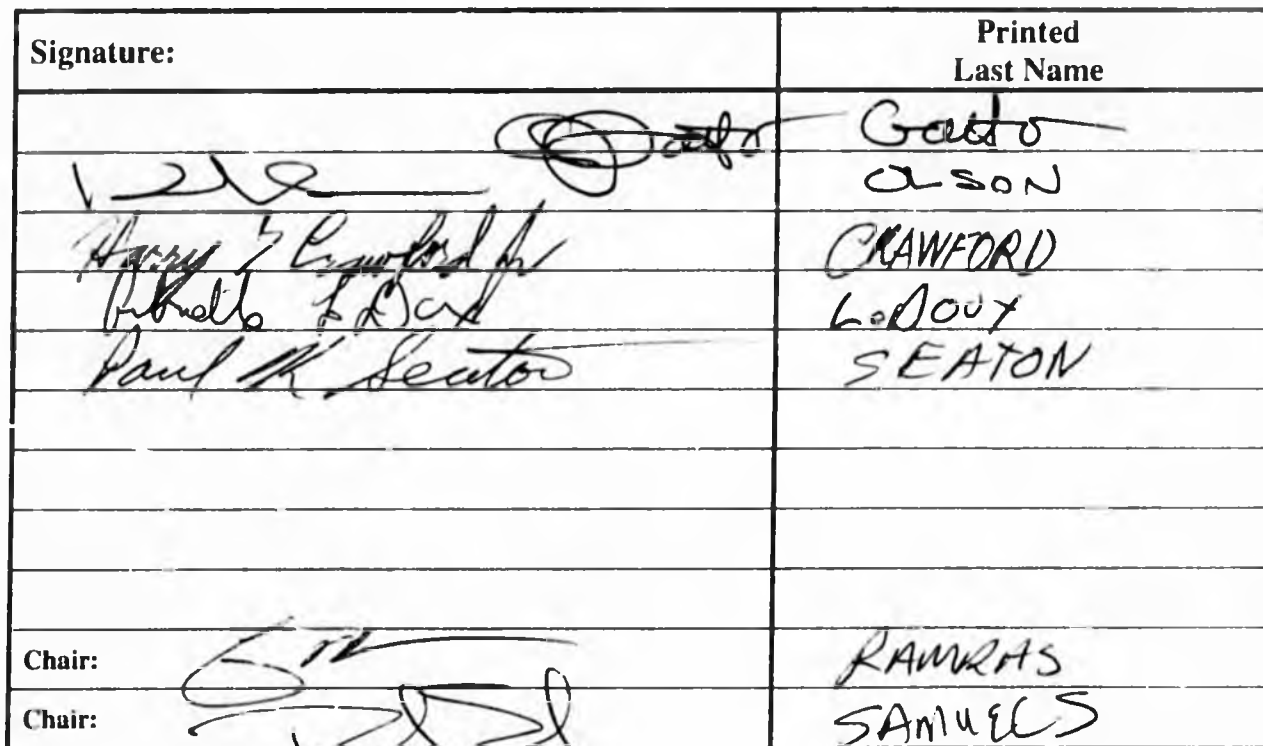 Signature: Printed
Last Name
Gatto
OLSON
Harry T Crawford Jr CRAWFORD
LeDoux LEDOUX
Paul K Seaton SEATON
Chair: RAMRAS
Chair: SAMUELS